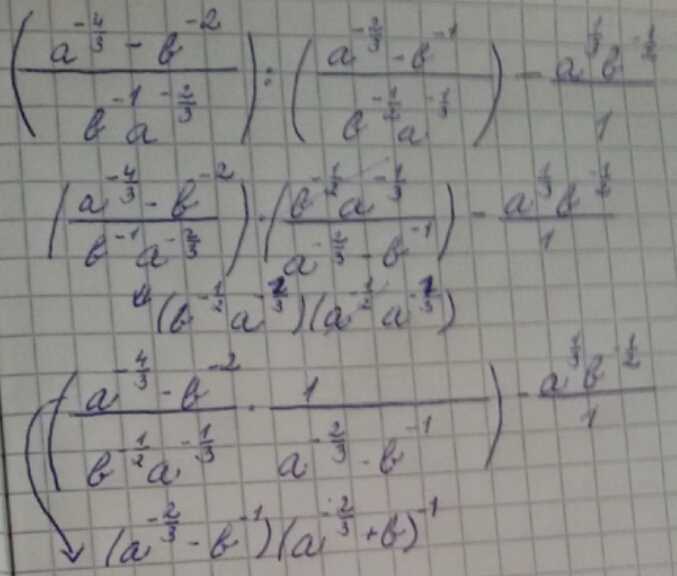 (a^{-4/3} - b^{-2} / b^{-1} a^{-2/3}) : (a^{-2/3} - b^{-1} / b^{-1/2} a^{-1/3}) - a^{1/3} b^{-1/2} / 1
(a^{-4/3} - b^{-2} / b^{-1} a^{-2/3}) · (b^{-1/2} a^{-1/3} / a^{-2/3} - b^{-1}) - a^{1/3} b^{-1/2} / 1
(b^{-1/2} a^{-1/3}) (a^{-1/2} a^{-1/3})
(a^{-4/3} - b^{-2} / b^{-1/2} a^{-1/3} · 1 / a^{-2/3} - b^{-1}) - a^{1/3} b^{-1/2} / 1
(a^{-2/3} - b^{-1}) (a^{-2/3} + b)^{-1}